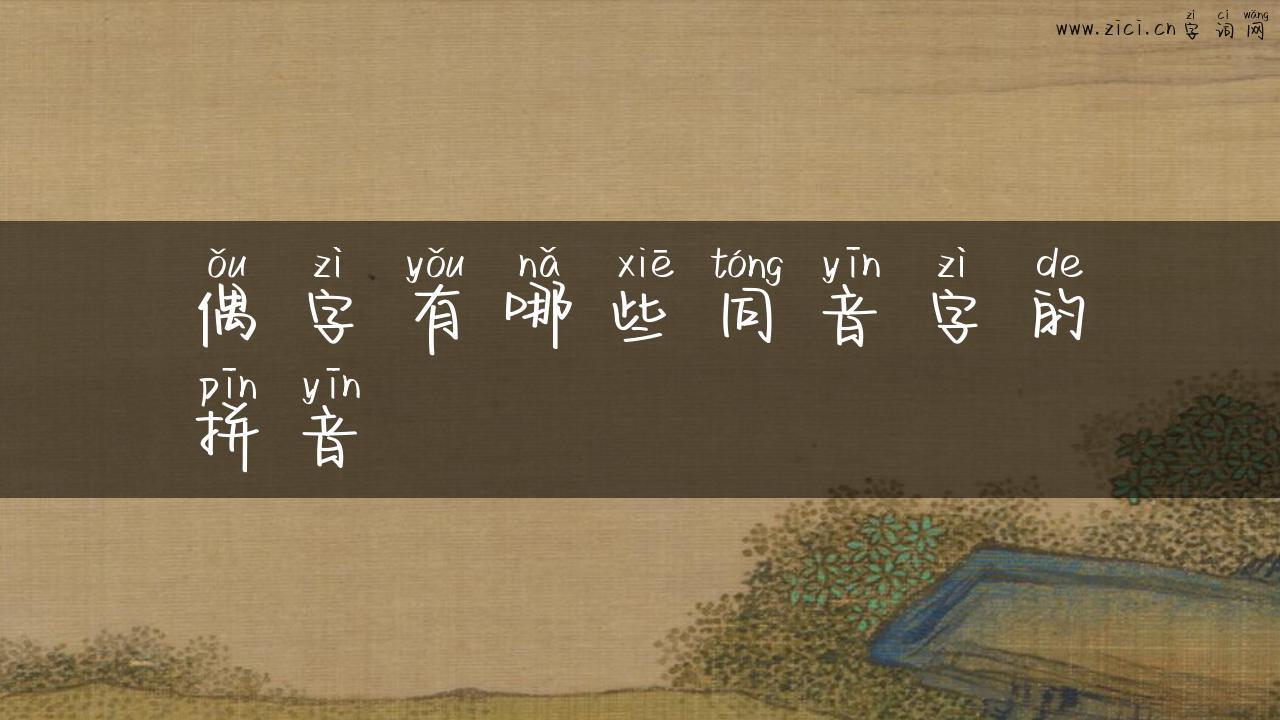 zì cí wǎng
www.zici.cn字词网
ǒu zì yǒu nǎ xiē tóng yīn zì de
偶字有哪些同音字的
pīn yīn
拼音